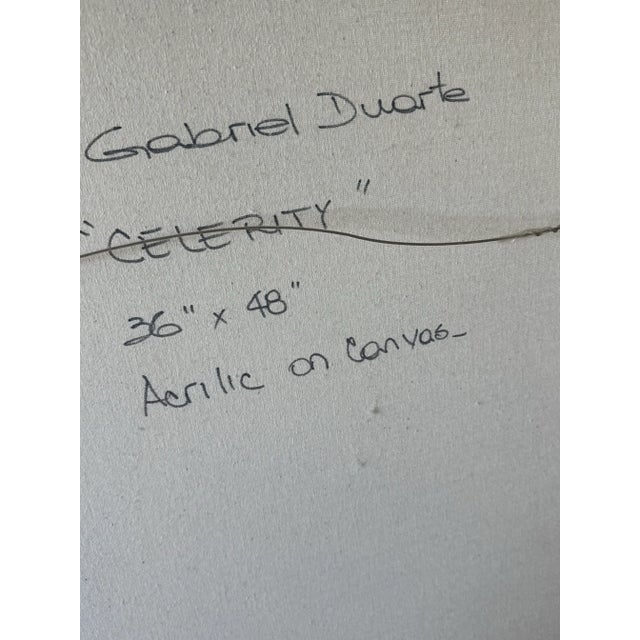 Gabriel Duarte
"CELERITY"
36" x 48"
Acrilic on Canvas_